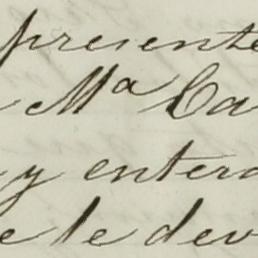 presente
Mª Ca
y entera
e le dev